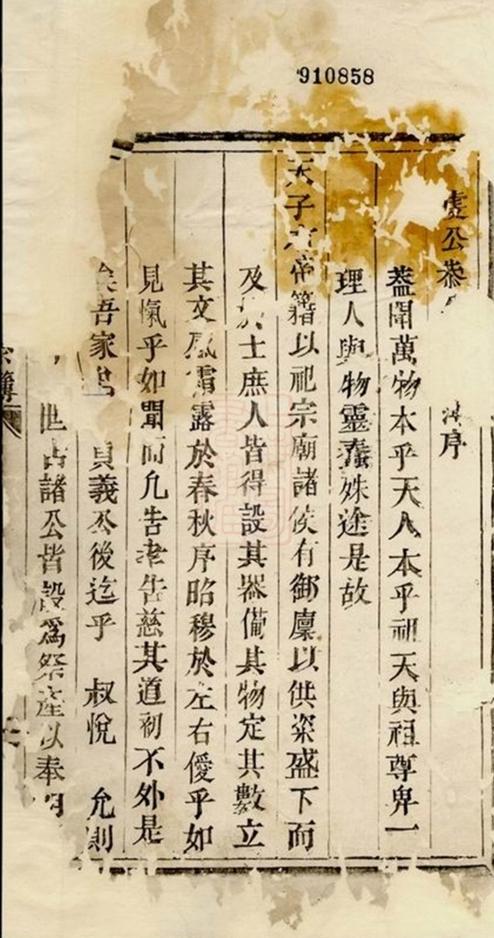 910858
公 序
蓋聞萬物本乎天人本乎祖天與祖尊卑一
理人與物靈蠢姝途是故
天子 帝籍以祀宗廟諸侯有御廩以供粢盛下而
及 士庶人皆得設其器備其物定其數立
其文感霜露於春秋序昭穆於左右僾乎如
見愾乎如聞而凡告孝告慈其道初不外是
吾家 貞義公後迄乎 叔悅 允則
世 諸公皆設為祭產以奉
簿